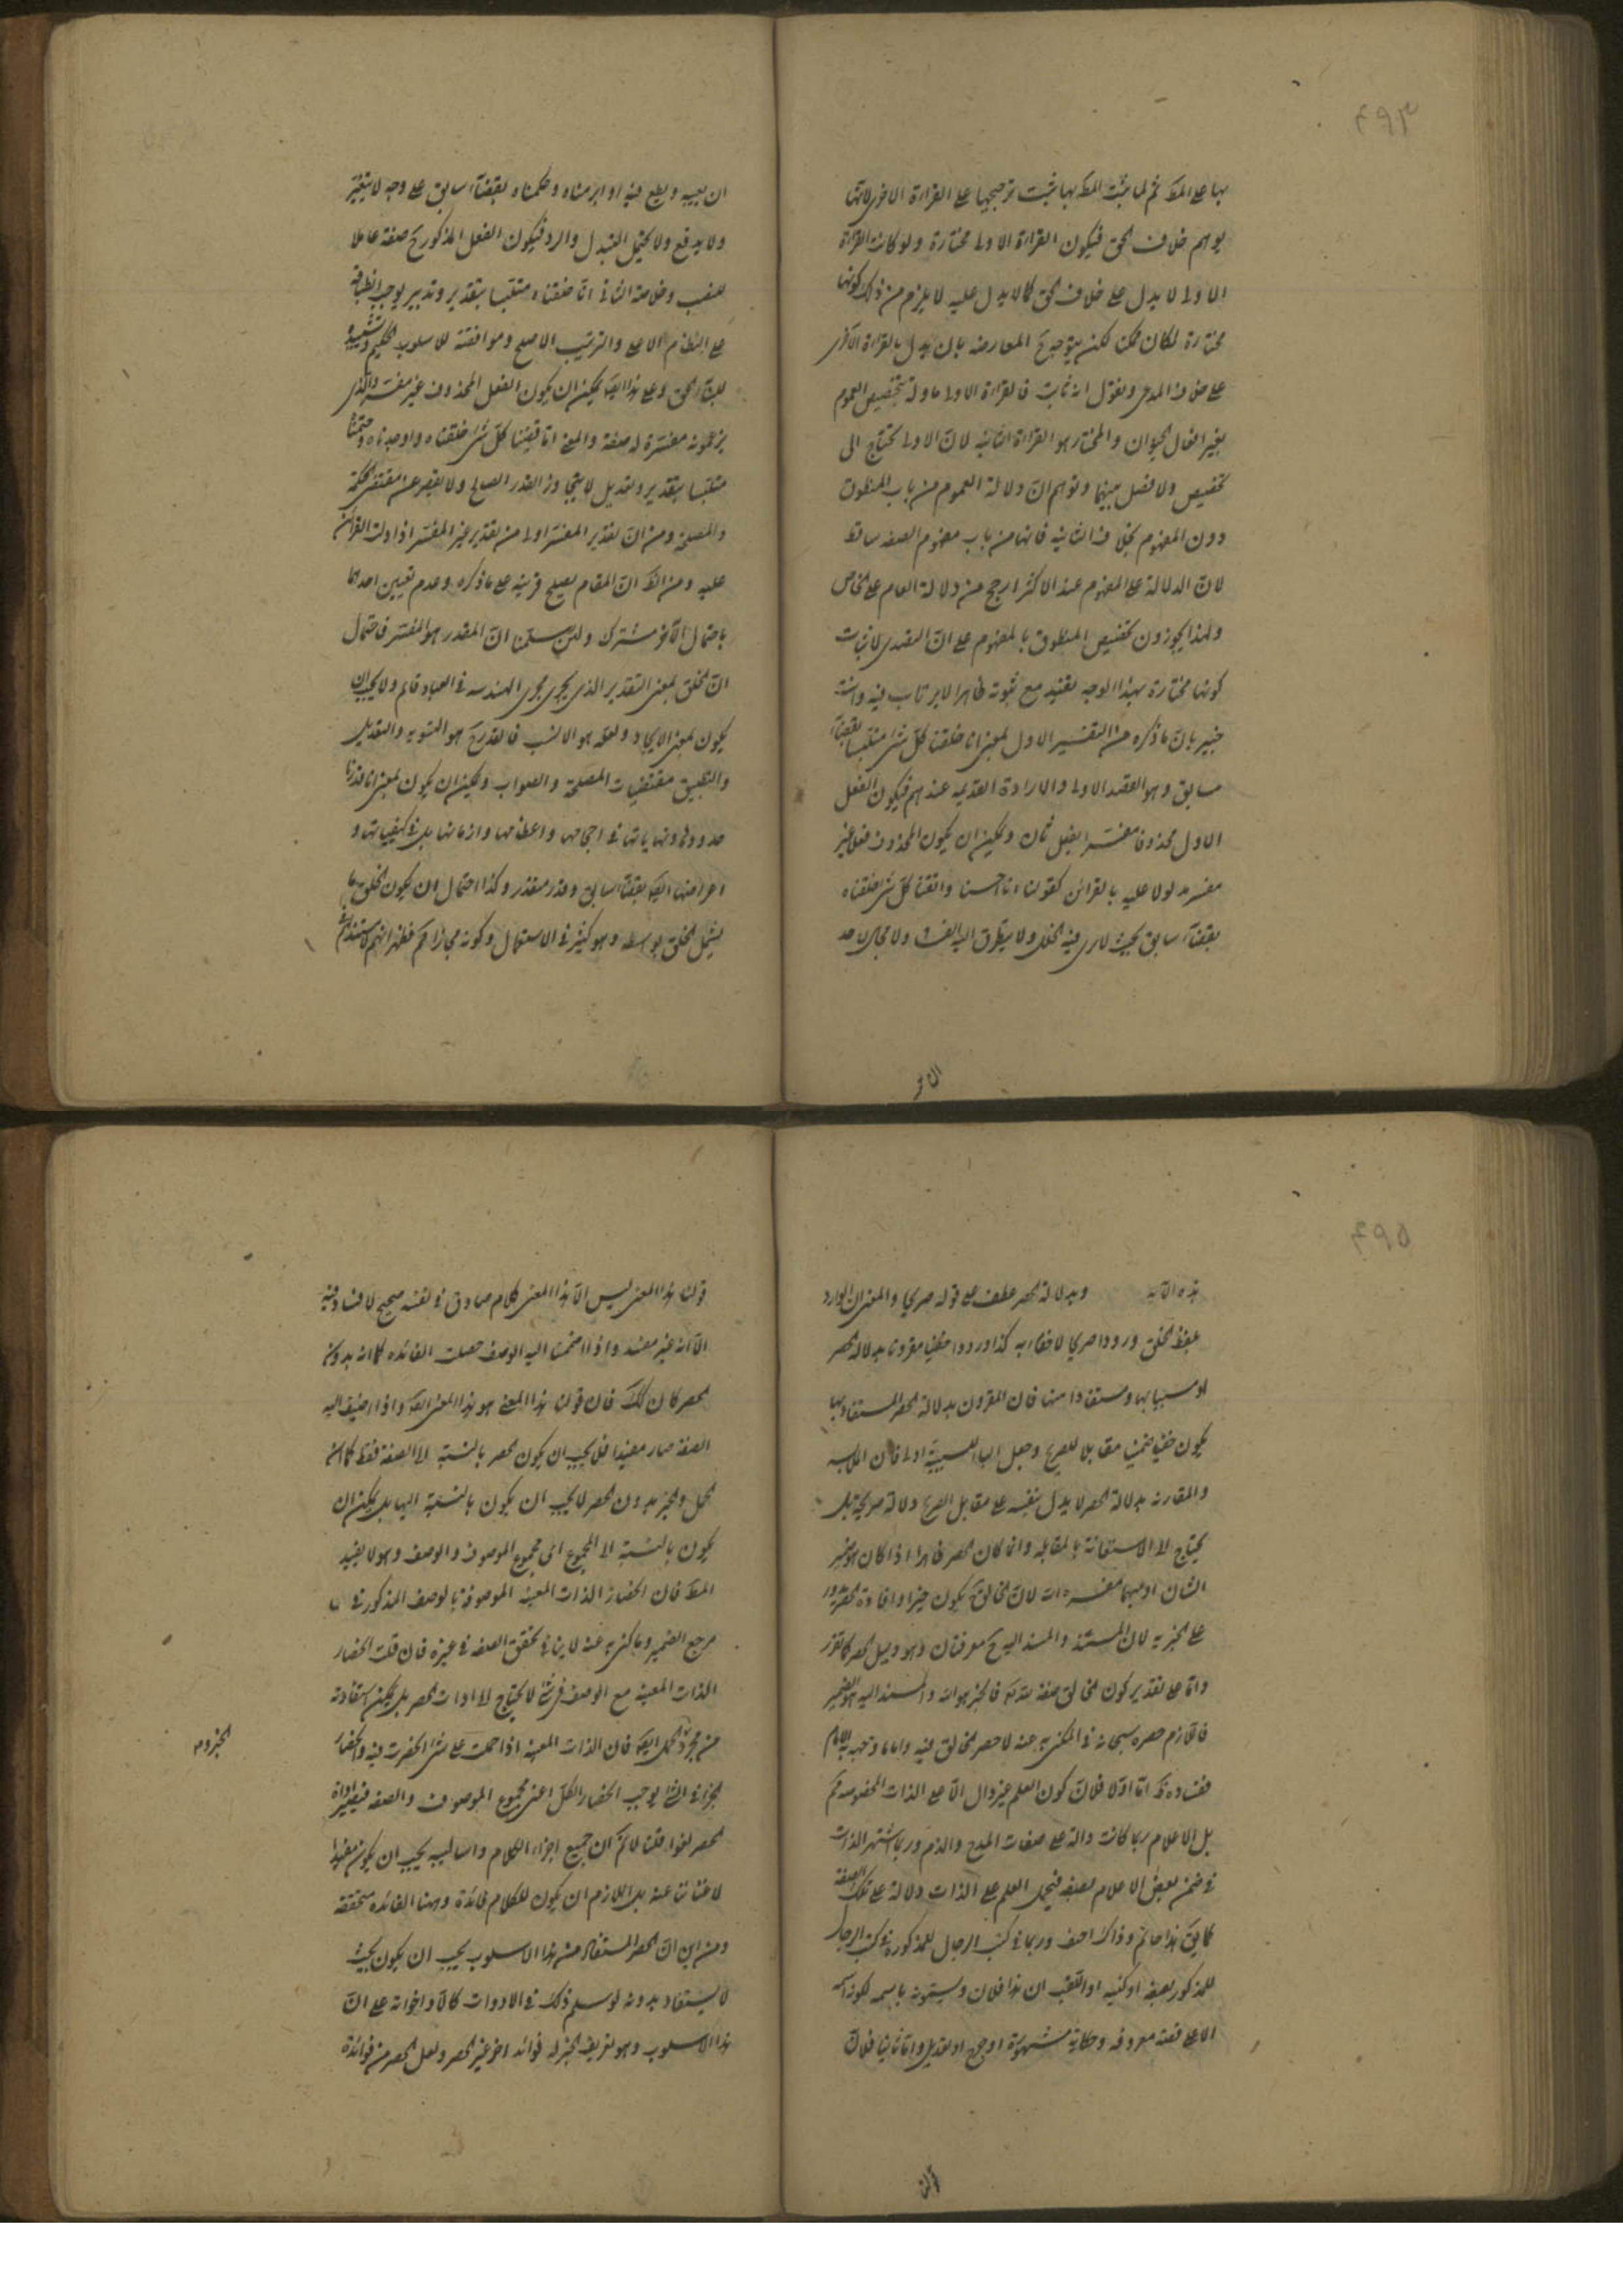 ۴۹۳
بها على المط ثم لما يثبت المط بها يثبت ترجيحها على القراءة الاخرى لانها
يوهم خلاف الحق فيكون القراءة الاولى مختارة ولو كانت القراءة
الاولى لا يدل على خلاف الحق كما لا يدل عليه لا يلزم من ذلك كونها
مختارة لكان ممكنا لكن يتوجه ح المعارضه بان يدل بالقراءة الاخرى
على خلاف المدعى ونقول انه ثابت فالقراءة الاولى ماولة بتخصيص العموم
بغير افعال الحيوان والمختار هو القراءة الثانية لان الاولى تحتاج الى
تخصيص ولا فضل بينهما وتوهم ان دلالة العموم من باب المنطوق
دون المفهوم بخلاف الثانيه فانها من باب مفهوم الصفه ساقط
لان الدلالة على المفهوم عند الاكثر ارجح من دلالة العام على الخاص
ولهذا يجوزون تخصيص المنطوق بالمفهوم على ان التصدى لاثبات
كونها مختارة بهذا الوجه تفيد مع ثبوته ظاهرا لا يرتاب فيه وانت
خبير بان ما ذكره من التفسير الاول بمعنى انا خلقنا كل شئ متلبسا بقضاء
سابق وهو القصد الاولى والارادة القديمه عندهم فيكون الفعل
الاول محذوفا مفسرا بفعل ثان ويمكن ان يكون المحذوف فعلا غير
مفسر مدلولا عليه بالقرائن كقولنا انا احسنا واتقنا كل شئ خلقناه
بقضاء سابق بحيث لا يرى فيه الخلل ولا يتطرق اليه الفساد ولا مجال لاحد
ان يعيبه ويطعن فيه او ابرمناه وحكمناه بقضاء سابق على وجه لا يتغير
ولا يدفع ولا يحتمل التبدل والرد فيكون الفعل المذكور ح صفة عاملا
للنصب وخلاصة الثانى انا خلقناه متلبسا بتقدير وتدبير يوجب انطباقه
على النظام الاعلى والترتيب الاصلح وموافقته للاسلوب الحكيم
للبناء الحق وعلى هذا ايضا يمكن ان يكون الفعل المحذوف غير مفسر والذى
يزعمونه مفسرة له صفة والمعنى انا قضينا كل شئ خلقناه واوجدناه
متلبسا بتقدير وتعديل لا يتجاوز القدر الصالح ولا يقصر عن مقتضى الحكمة
والمصلحة ومن ان تقدير المفسر اولى من تقدير غير المفسر اذا دلت القرائن
عليه ومن الظ ان المقام يصلح قرينه على ما ذكره وعدم تعيين احدهما
باحتمال الآخر مشترك ولئن سلمنا ان المقدر هو المفسر فاحتمال
ان الخلق بمعنى التقدير الذى يجرى مجرى الهندسه فى العباد قائم ولا يجب ان
يكون بمعنى الايجاد ولعله هو الانسب فالقدر ح هو التسويه والتعديل
والتطبيق مقتضيات المصلحة والصواب ويمكن ان يكون بمعنى انا قدرنا
حدودها ونهاياتها فى احجامها واعظامها وازمانها بل فى كيفياتها و
اعراضها ايضا بقضاء سابق وقدر مقدر وكذا احتمال ان يكون الخلق ما
يشمل الخلق بواسطه وهو كثير فى الاستعمال وكونه مجازا
۴۹۵
هذه الآية وبدلالة الحصر عطف على قوله صريحا والمعنى ان الوارد
بلفظ الخلق ورودا صريحا لا خفاء به كذا ورودا خفيا مقرونا بدلالة الحصر
او مسببا بها ومستفادا منها فان المقرون بدلالة الحصر المستفاد بها
يكون خفيا ضمنيا مقابلا للصريح وجعل الباء للسببية اولى فان الملابسه
والمقارنة بدلالة الحصر لا يدل بنفسه على مقابل الصريح دلالة صريحة بل
يحتاج الى الاستعانة بالمقابله وانما كان الحصر ظاهرا اذا كان هو ضمير
الشان او مبهما مفسره الله لان الخالق يكون خبرا وافادة الحصر
على الخبرية لان المسند والمسند اليه ح معرفتان وهو دليل الحصر كما تقرر
واما على تقدير كون الخالق صفة لله تع فالخبر هو الله والمسند اليه هو الضمير
فاللازم حصره سبحانه فى المكنى به عنه لا حصر الخالق فيه واما ما وجهه به الامام
ففساده ظ اما اولا فلان كون العلم غير دال الا على الذات المخصوصه مم
بل الاعلام ربما كانت دالة على صفات المدح والذم وربما اشتهر الذات
فى ضمن بعض الاعلام بصفه فيحمل العلم على الذات دلالة على تلك الصفة
كما يق هذا حاتم وذاك احنف وربما فى كتب الرجال
للمذكور بصفه او كنيه او لقب ان هذا فلان ويسمونه باسمه لكونه
الاعلى قصة معروفه وحكاية مشهورة او جرح او تعديل واما ثانيا فلان
قولك هذا المعنى ليس الا هذا المعنى كلام صادق فى نفسه صحيح لا فساد فيه
الا انه غير مفيد واذا ضممنا اليه الوصف حصلت الفائده كما انه بدون
الحصر كان كذلك فان قولنا هذا المعنى هو هذا المعنى واذا اضيف اليه
الصفة صار مفيدا فلا يجب ان يكون الحصر بالنسبة الى الصفة فقط كما ان
الحمل والخبر بدون الحصر لا يجب ان يكون بالنسبة اليها بل يمكن ان
يكون بالنسبة الى المجموع اى مجموع الموصوف والوصف وهو لا يفيد
المط فان انحصار الذات المعينة الموصوفة بالوصف المذكور فى
مرجع الضمير وما كنى به عنه لا ينافى تحقق الصفه فى غيره فان قلت انحصار
الذات المعينة مع الوصف فى شئ لا يحتاج الى ادات الحصر بل يمكن استفادته
من مجرد الحمل ايضا فان الذات المعينه اذا حملت على شئ انحصرت فيه وانحصار
الجزء فى الشئ يوجب انحصار الكل اعنى مجموع الموصوف والصفه فيصير اداة
الحصر لغوا قلنا لا نم ان جميع اجزاء الكلام واساليبه يجب ان يكون مفيدا
لا غناء عنه بل اللازم ان يكون للكلام فائدة وههنا الفائده متحققه
ومن اين ان الحصر المستفاد من هذا الاسلوب يجب ان يكون بحيث
لا يستفاد بدونه لو سلم ذلك فى الادوات كالا واخواته على ان
هذا الاسلوب وهو تعريف الخبر له فوائد اخر غير الحصر ولعل الحصر من فوائده